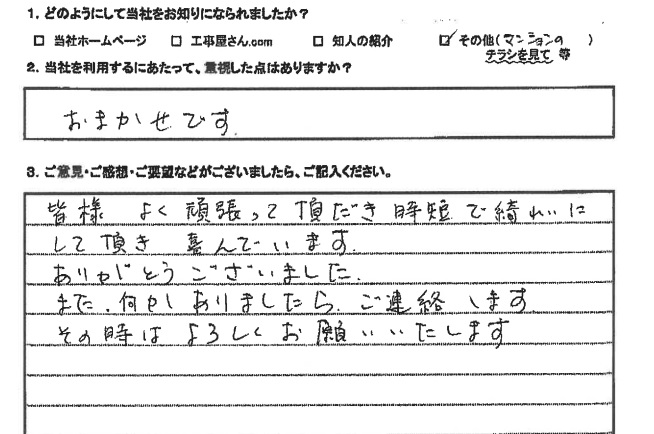 1. どのようにして当社をお知りになられましたか？
□ 当社ホームページ □ 工事屋さん.com □ 知人の紹介 ☑ その他(マンションの )
チラシを見て 等
2. 当社を利用するにあたって、重視した点はありますか？
おまかせです.
3. ご意見・ご感想・ご要望などがございましたら、ご記入ください。
皆様 よく頑張って頂だき 時短で綺れいに
して頂き 喜んでいます.
ありがとうございました.
また、何かしありましたら、ご連絡します
その時は よろしくお願いいたします